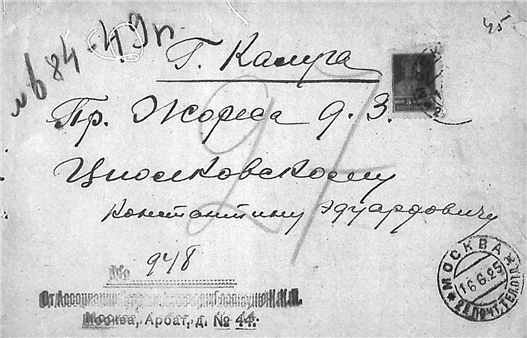 45
84 · 49п.
Г. Калуга
Пр. Жореса д. 3.
Циолковскому
Константину Эдуардовичу
27
№ 948
От Ассоциации
Москва, Арбат, д. № 44.
МОСКВА
16.6.25